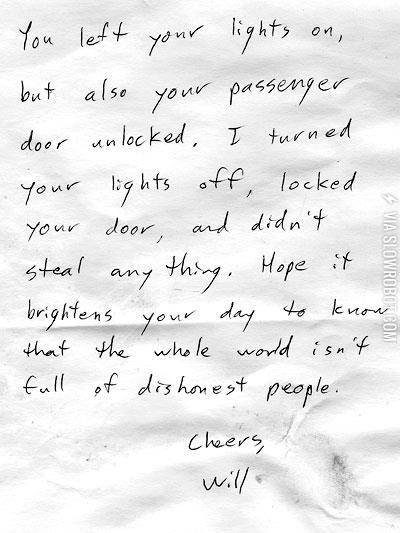 You left your lights on,
but also your passenger
door unlocked. I turned
your lights off, locked
your door, and didn't
steal anything. Hope it
brightens your day to know
that the whole world isn't
full of dishonest people.
Cheers,
Will
VIA SLOWROBOT.COM